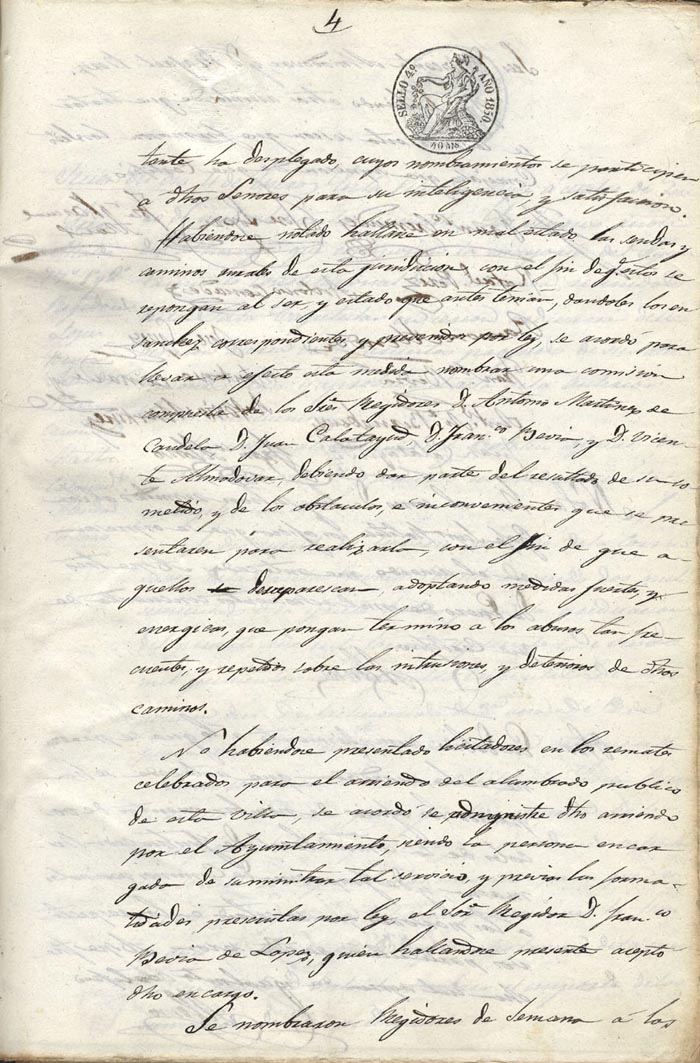 4
SELLO 4º AÑO 1850.
40 MS.
tante ha desplegado, cuyos nombramientos se participen
a dhos Señores para su inteligencia y satisfaccion.
Habiendose notado hallarse en mal estado las sendas y
caminos rurales de esta jurisdiccion con el fin de q.e estos se
repongan al ser y estado que antes tenian, dandoles los en
sanches correspondientes, y prevenidos por ley, se acordó para
llevar a efecto esta medida nombrar una comision
compuesta de los Sres Regidores D. Antonio Martinez de
Candela D. Juan Calatayud D. Fran.co Hevia y D. Vicen
te Almodovar, debiendo dar parte del resultado de su co
metido, y de los obstaculos, é inconvenientes que se pre
sentaren para realizarla, con el fin de que a
quellos desaparescan, adoptando medidas fuertes, y
energicas, que pongan termino á los abusos tan fre
cuentes, y repetidos sobre las intrusiones, y deterioros de dhos
caminos.
No habiendose presentado licitadores en los remates
celebrados para el arriendo del alumbrado publico
de esta Villa, se acordó se administre dho arriendo
por el Ayuntamiento, siendo la persona encar
gada de suministrar tal servicio, y previas las forma-
lidades prescritas por ley, el Sor Regidor D. Fran.co
Hevia de Lopez, quien hallandose presente acepto
dho encargo.
Se nombraron Regidores de Semana á los